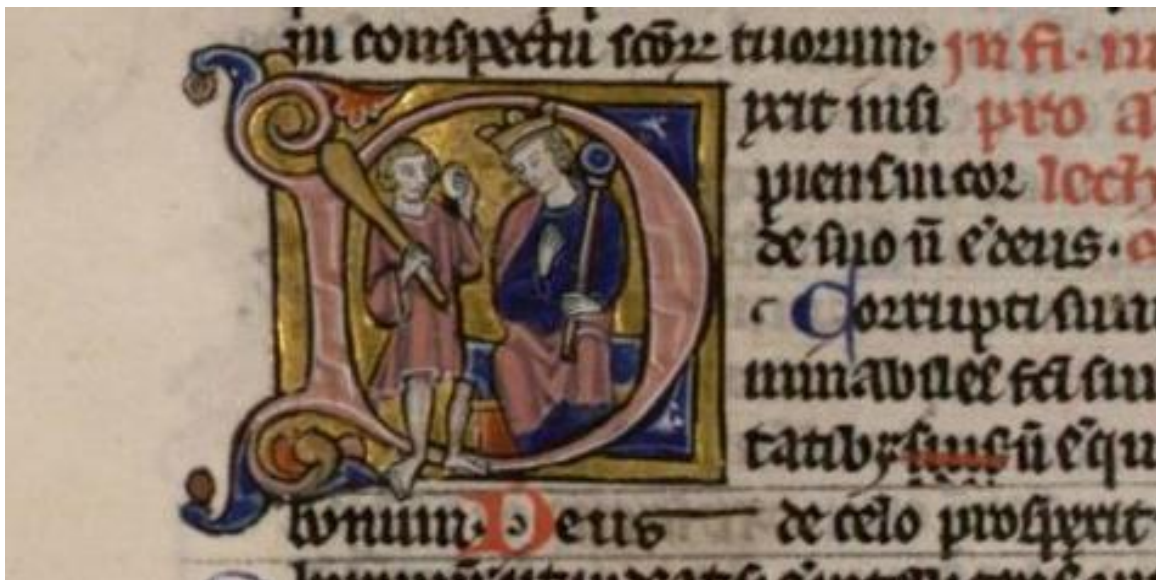 in conspectu scōr tuorum. In fi. in
ixit insi pro a
piens in cor lech
de suo n̄ ē deus.
Corrupti sun
minabiles fc̄i sun
tatibꝫ suis n̄ ē qu
bonum. Deus de celo prospexit